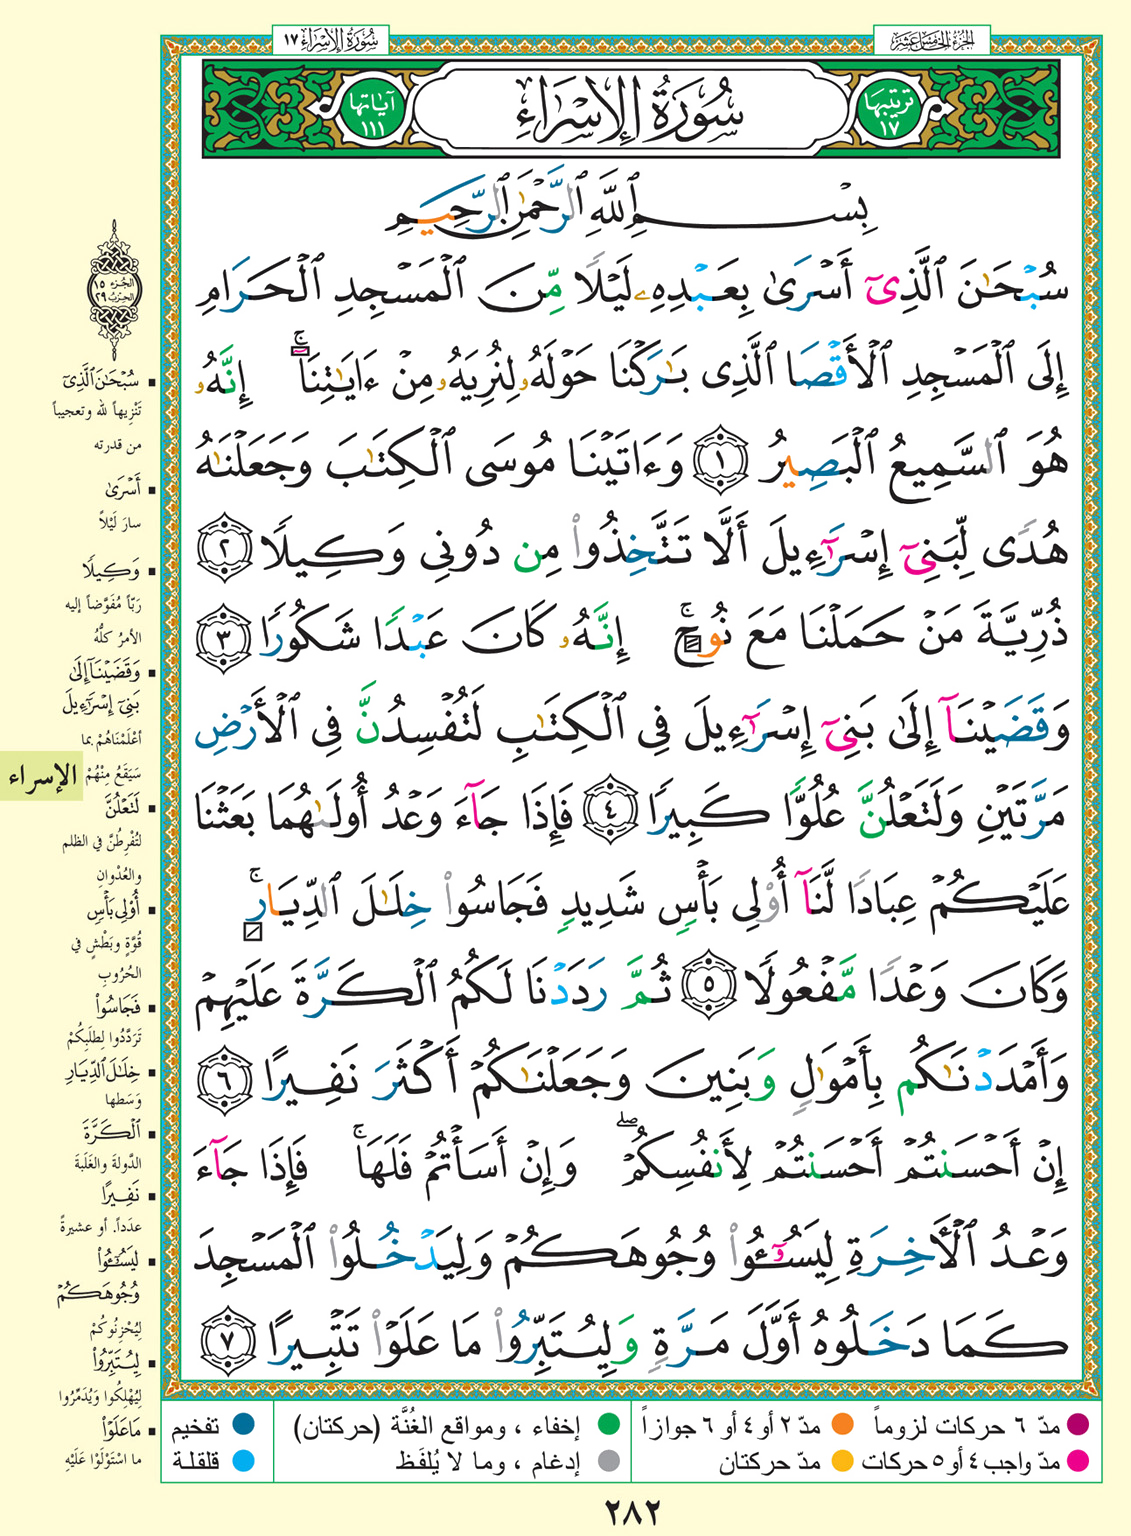 الجزء الخامس عشر
سُورَةُ الإِسْرَاء ١٧
ترتيبها ١٧
سُورَةُ الإِسْرَاءِ
آياتها ١١١
بِسْمِ ٱللَّهِ ٱلرَّحْمَٰنِ ٱلرَّحِيمِ
سُبْحَٰنَ ٱلَّذِىٓ أَسْرَىٰ بِعَبْدِهِۦ لَيْلًا مِّنَ ٱلْمَسْجِدِ ٱلْحَرَامِ
إِلَى ٱلْمَسْجِدِ ٱلْأَقْصَا ٱلَّذِى بَٰرَكْنَا حَوْلَهُۥ لِنُرِيَهُۥ مِنْ ءَايَٰتِنَآ ۚ إِنَّهُۥ
هُوَ ٱلسَّمِيعُ ٱلْبَصِيرُ ١ وَءَاتَيْنَا مُوسَى ٱلْكِتَٰبَ وَجَعَلْنَٰهُ
هُدًى لِّبَنِىٓ إِسْرَٰٓءِيلَ أَلَّا تَتَّخِذُوا۟ مِن دُونِى وَكِيلًا ٢
ذُرِّيَّةَ مَنْ حَمَلْنَا مَعَ نُوحٍ ۚ إِنَّهُۥ كَانَ عَبْدًا شَكُورًا ٣
وَقَضَيْنَآ إِلَىٰ بَنِىٓ إِسْرَٰٓءِيلَ فِى ٱلْكِتَٰبِ لَتُفْسِدُنَّ فِى ٱلْأَرْضِ
مَرَّتَيْنِ وَلَتَعْلُنَّ عُلُوًّا كَبِيرًا ٤ فَإِذَا جَآءَ وَعْدُ أُولَىٰهُمَا بَعَثْنَا
عَلَيْكُمْ عِبَادًا لَّنَآ أُو۟لِى بَأْسٍ شَدِيدٍ فَجَاسُوا۟ خِلَٰلَ ٱلدِّيَارِ ۚ
وَكَانَ وَعْدًا مَّفْعُولًا ٥ ثُمَّ رَدَدْنَا لَكُمُ ٱلْكَرَّةَ عَلَيْهِمْ
وَأَمْدَدْنَٰكُم بِأَمْوَٰلٍ وَبَنِينَ وَجَعَلْنَٰكُمْ أَكْثَرَ نَفِيرًا ٦
إِنْ أَحْسَنتُمْ أَحْسَنتُمْ لِأَنفُسِكُمْ ۖ وَإِنْ أَسَأْتُمْ فَلَهَا ۚ فَإِذَا جَآءَ
وَعْدُ ٱلْأَخِرَةِ لِيَسُۥٓـُٔوا۟ وُجُوهَكُمْ وَلِيَدْخُلُوا۟ ٱلْمَسْجِدَ
كَمَا دَخَلُوهُ أَوَّلَ مَرَّةٍ وَلِيُتَبِّرُوا۟ مَا عَلَوْا۟ تَتْبِيرًا ٧
الجُزء ١٥
الحِزبُ ٢٩
سُبْحَٰنَ ٱلَّذِىٓ
تَنْزِيهاً لله وتعجيباً
من قدرته
أَسْرَىٰ
سارَ لَيْلاً
وَكِيلًا
رَبّاً مُفَوَّضاً إليه
الأمرُ كلُّهُ
وَقَضَيْنَآ إِلَىٰ
بَنِىٓ إِسْرَٰٓءِيلَ
أعْلَمْنَاهُمْ بما
سَيَقَعُ مِنْهُمْ
الإسراء
لَتَعْلُنَّ
لتُفْرِطُنَّ في الظلم
والعُدْوانِ
أُو۟لِى بَأْسٍ
قُوَّةٍ وبَطْشٍ في
الحُرُوبِ
فَجَاسُوا۟
تَرَدَّدُوا لِطلَبِكُمْ
خِلَٰلَ ٱلدِّيَارِ
وَسَطها
ٱلْكَرَّةَ
الدَّولةَ والغَلَبةَ
نَفِيرًا
عدَداً. أو عشيرةً
لِيَسُۥٓـُٔوا۟
وُجُوهَكُمْ
لِيُحْزِنُوكُمْ
لِيُتَبِّرُوا۟
لِيُهْلِكُوا وَيُدَمِّرُوا
مَا عَلَوْا۟
ما اسْتَوْلَوْا عَلَيْهِ
مدّ ٦ حركات لزوماً
مدّ ٢ أو ٤ أو ٦ جوازاً
إخفاء ، ومواقع الغُنَّة (حركتان)
تفخيم
مدّ واجب ٤ أو ٥ حركات
مدّ حركتان
إدغام ، وما لا يُلفَظ
قلقلة
٢٨٢